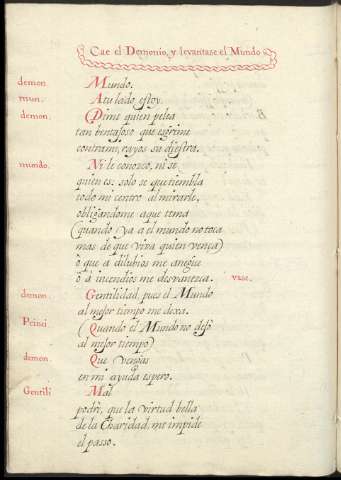 Cae el Demonio, y levantase el Mundo
demon. Mundo.
mun. A tu lado estoy.
demon. Dime quien pelea
tan bentajoso que esgrime
contra mi, rayos su diestra.
mundo. Ni le conozco, ni se
quien es: solo se que tiembla
todo mi centro al mirarle,
obligandome a que tema
(quando ya a el mundo no toca
mas de que viva quien vença)
ò que a dilubios me anegue
ò a incendios me desvanezca. vase.
demon. Gentilidad, pues el Mundo
al mejor tiempo me dexa.
Princi. (Quando el Mundo no dejò
al mejor tiempo)
demon. Que vengas
en mi ayuda espero.
Gentili Mal
podrè, que la virtud bella
de la Charidad, me impide
el passo.